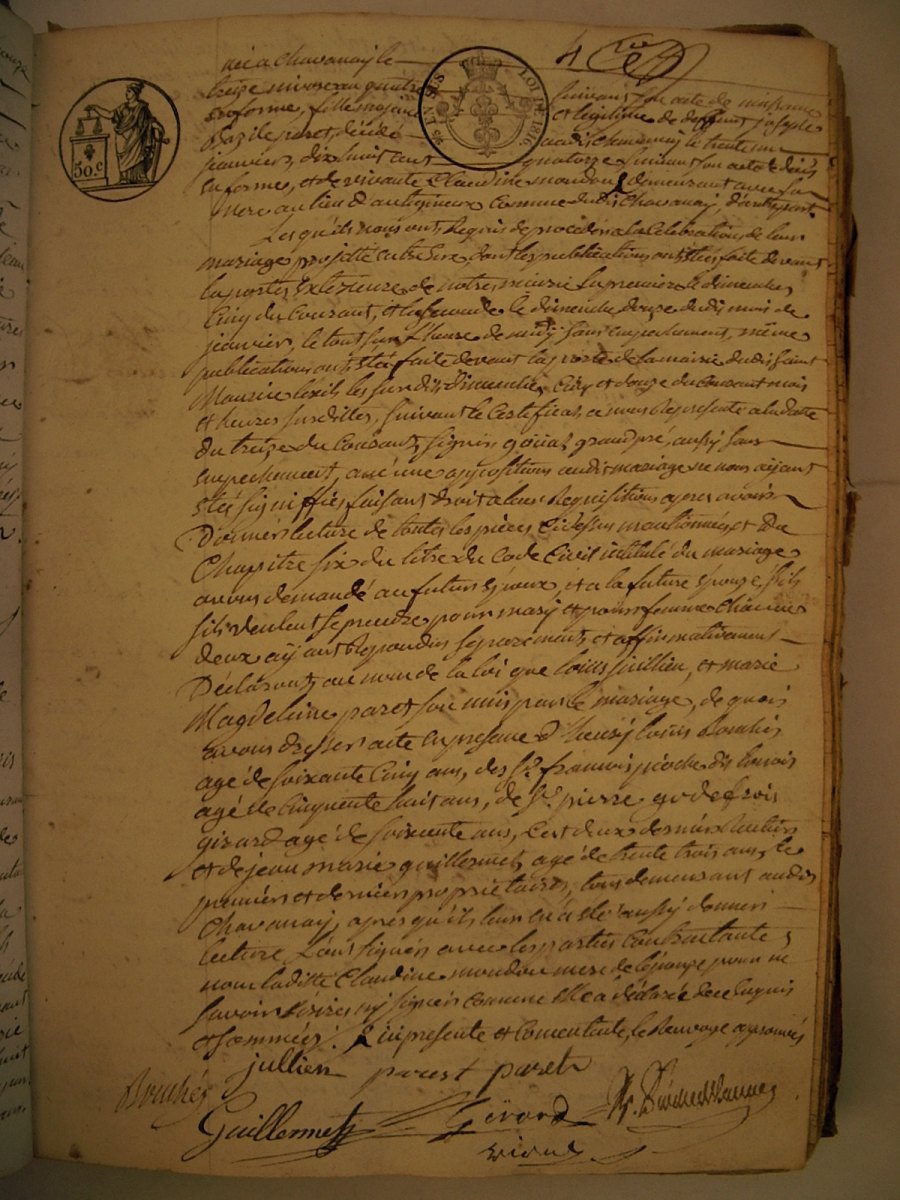 née a chavanay le
treize nivose an quatre suivant son acte de naissance
en forme, fille majeure et légitime de deffunt joseph
Bazile paret, décédé audit chavanay le trente un
janvier, dix huit cent quatorze suivant son acte de décès
en forme, et de vivante Claudine mondon demeurant avec sa
mere au lieu d'antogneux commune dudit Chavanay d'autre part.
Lesquels nous ont Requis de procéder a la Celebration de leur
mariage projetté entre eux dont les publications ont étés faite devant
la porte Exterieure de notre mairie la premiere le dimanche
Cinq du Courant, et la seconde le dimanche douze dudit mois de
janvier, le tout sur l'heure de midy sans empechement, même
publications ont étés faite devant la porte de la mairie dudit saint
Maurice lexil les susdits Dimanche Cinq et douze du Courant mois
et heures susdittes, suivant le Certificat a nous Représenté a la datte
du treize du Courant, signés grand pré, aussy sans
empechement, aucune oppositions audit mariage ne nous aÿant
étés signiffiés faisant droit a leur Requisitions apres avoir
Donner lecture de toutes les pièces Ci dessus mentionnées, et du
Chapitre six du titre du Code Civil intitulé du mariage
avons demandé au futur Epoux, et a la future Epouze, s'ils
s'ils veulent se prendre pour mary et pour femme chacun
deux aÿant Repondus séparement et affirmativement
Déclarons au nom de la loi que louis jullien, et marie
Magdelaine paret sont unis par le mariage, de quoi
avons dresser acte en presence d'heusy louis Bouchés
agé de soixante Cinq ans, des Sr. francois pioche dit
agé de Cinquente huit ans, de Sr. pierre godefroi
girard agé de soixente ans, Ces deux dernier Rentier
et de jean marie guillermet, agé de trente trois ans, le
premier et dernier propriétaires, tous demeurant audit
Chavanay, apres qu'ils leur en a été aussy donner
lecture L'ont signés avec les parties Contractante
non laditte Claudine mondon mere de l'épouze pour ne
savoir Ecrire ny signer comme Elle a déclarée de ce Enquis
et sommée. ici presente et Consentente, le Renvoye approuvés
jullien paret paret
Bouchés
Guillermet Gérard
vial
50.C
25 EN SUS LOI DE 1816